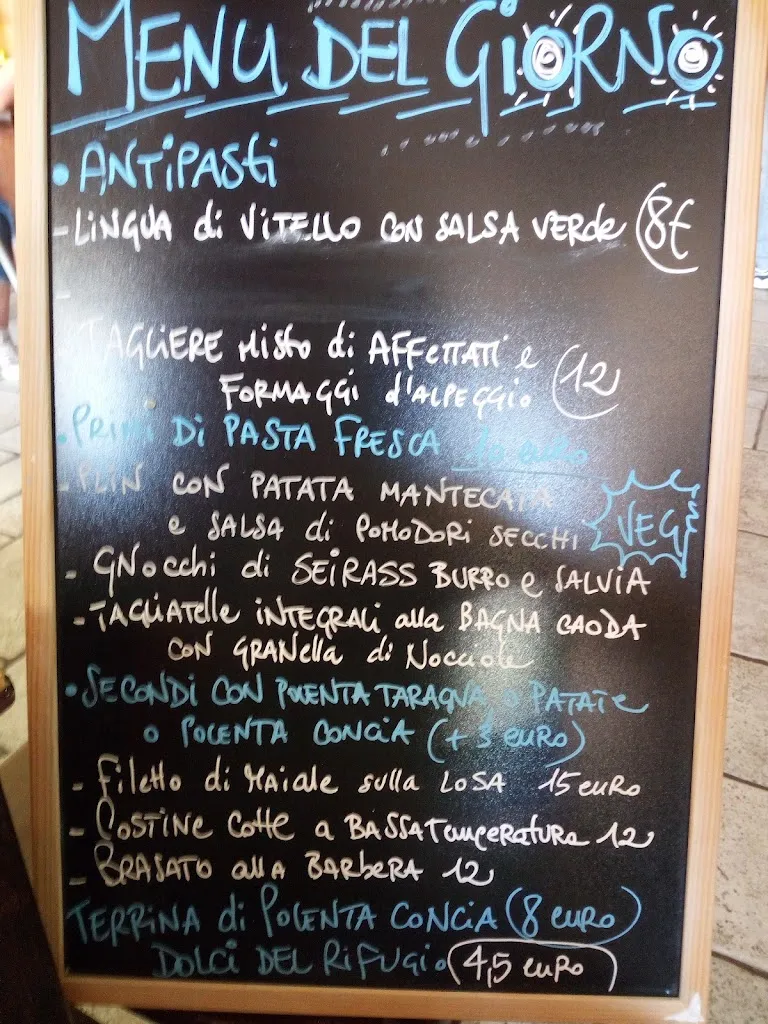 MENU DEL GIORNO
• ANTIPASTI
- LINGUA di VITELLO CON SALSA VERDE 8€
-
TAGLIERE MISTO di AFFETTATI e 12
FORMAGGI d'ALPEGGIO
• PRIMI DI PASTA FRESCA 10 euro
- PLIN CON PATATA MANTECATA
e SALSA di POMODORI SECCHI VEG
- GNOCCHI di SEIRASS BURRO e SALVIA
- TAGLIATELLE INTEGRALI alla BAGNA CAODA
CON GRANELLA di NOCCIOLE
• SECONDI CON POLENTA TARAGNA o PATATE
o POLENTA CONCIA (+ 3 euro)
- Filetto di Maiale sulla LOSA 15 euro
- COSTINE COTTE a BASSA Temperatura 12
- BRASATO alla BARBERA 12
TERRINA di POLENTA CONCIA (8 euro)
DOLCI DEL RIFUGIO 4,5 euro